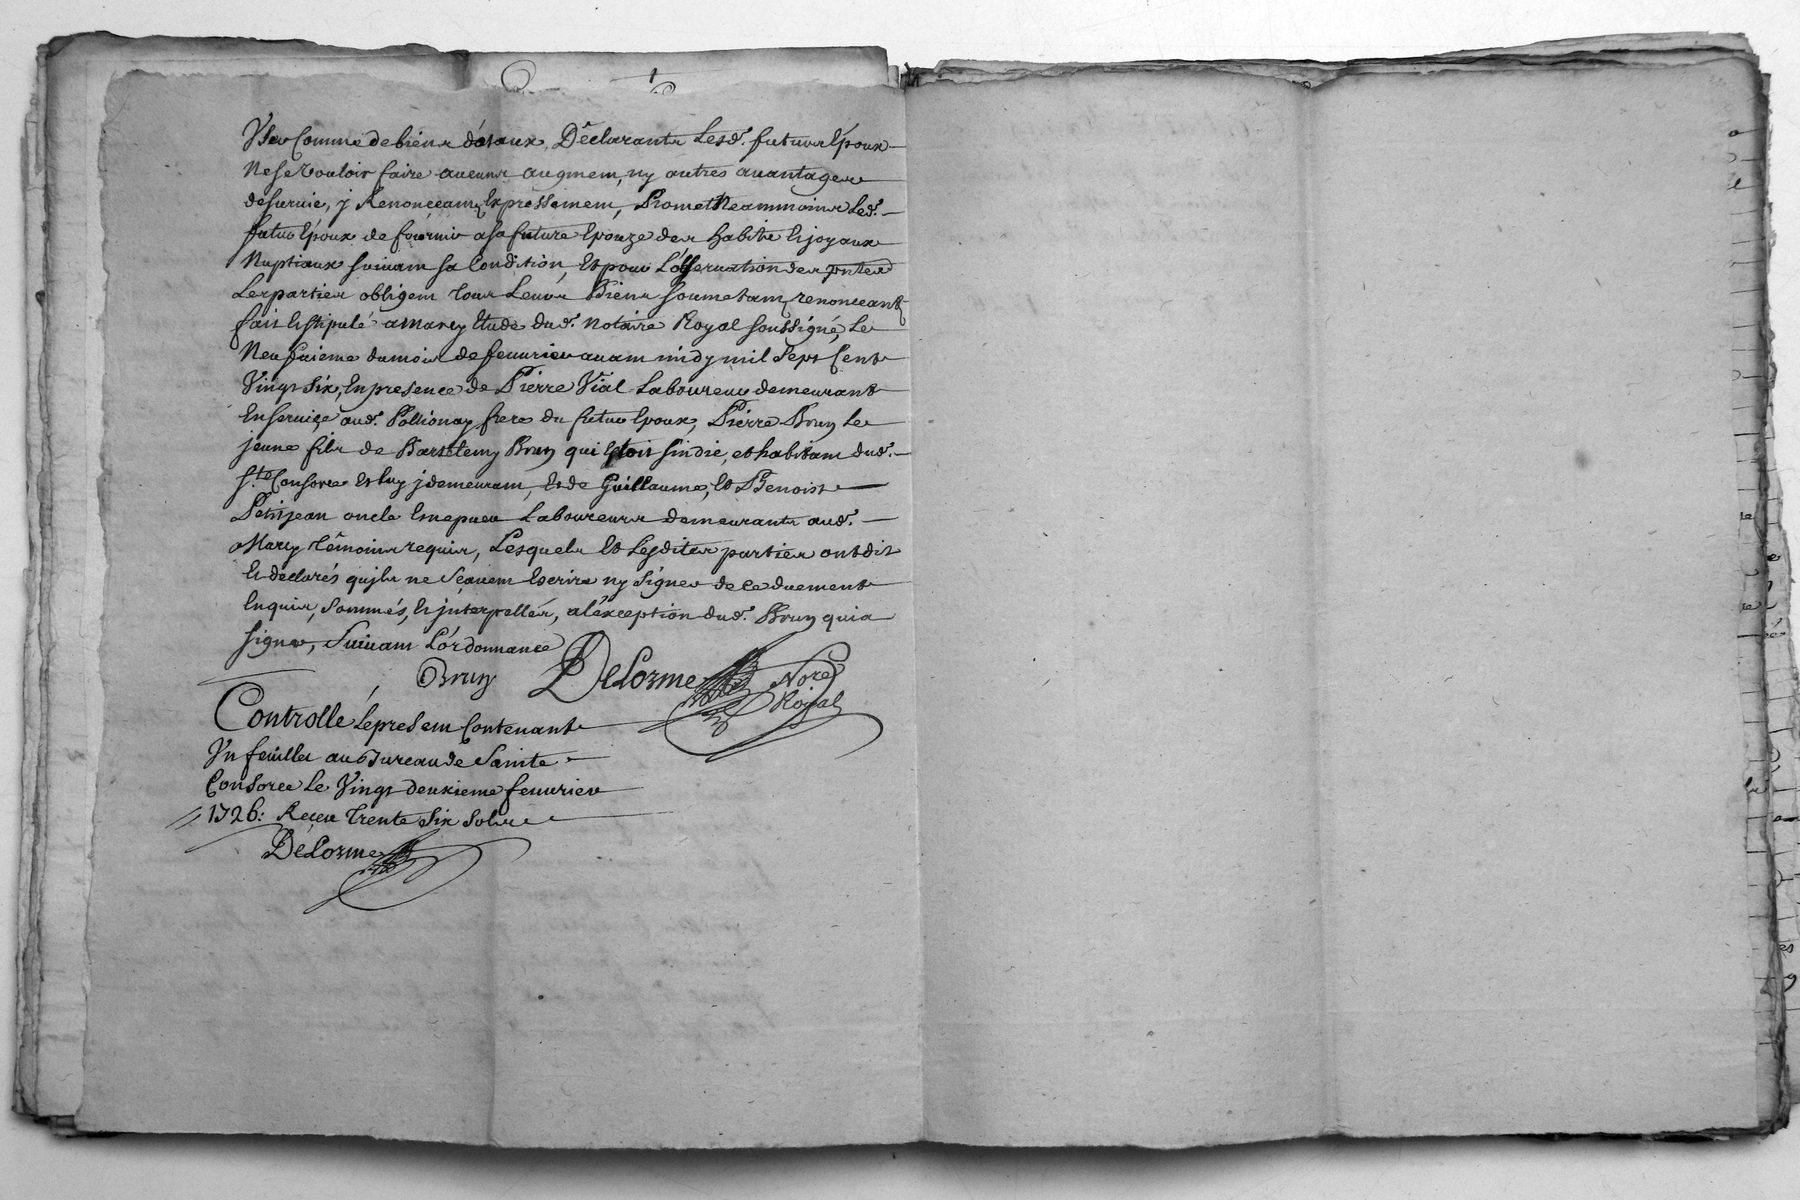 User Comme de biens dótaux, Déclarants Lesd. futurs Époux
Ne se vouloir faire aucuns augmem, ny autres auantages
desuruie, y Renonceamt Expressemem, Promet Neammoins Led.
futur Epoux de fournir a sa future Epouze des habits Et joyaux
Nuptiaux suiuam sa Condition, Et pour L'obseruation des pntes
Les parties obligem tous Leurs Biens soumetam, renonceant
fait Et stipulé a Marcy Etude dud. Notaire Royal soussigné, Le
Neufuieme du mois de feuurier auam midy mil Sept Cent
Vingt Six, En presence de Pierre Vial Laboureur demeurant
En seruice aud. Pollionay frere du futur Epoux, Pierre Brun Le
jeune fils de Bartelemy Brun qui Estoit sindic, et habitam dud.
S.te Consorce Et luy j demeuram, Et de Guillaume, Et Benoist
Petitjean oncle Et nepueu Laboureurs demeurants aud.
Marcy témoins requis, Lesquels Et Lesdites parties ont dit
Et declarés qu'jls ne Sçauem Escrire ny Signer de ce duement
Enquis, Sommés, Et jnterpellés, a léxception dud. Brun qui a
signer, Suiuam L'órdonnance
Brun DeLorme No.re Royal
Controllé Le presem Contenant
Vn feuillet au Bureau de Sainte
Consorce Le Vingt deuxieme feuurier
1726: Receu Trente Six Sols
DeLorme